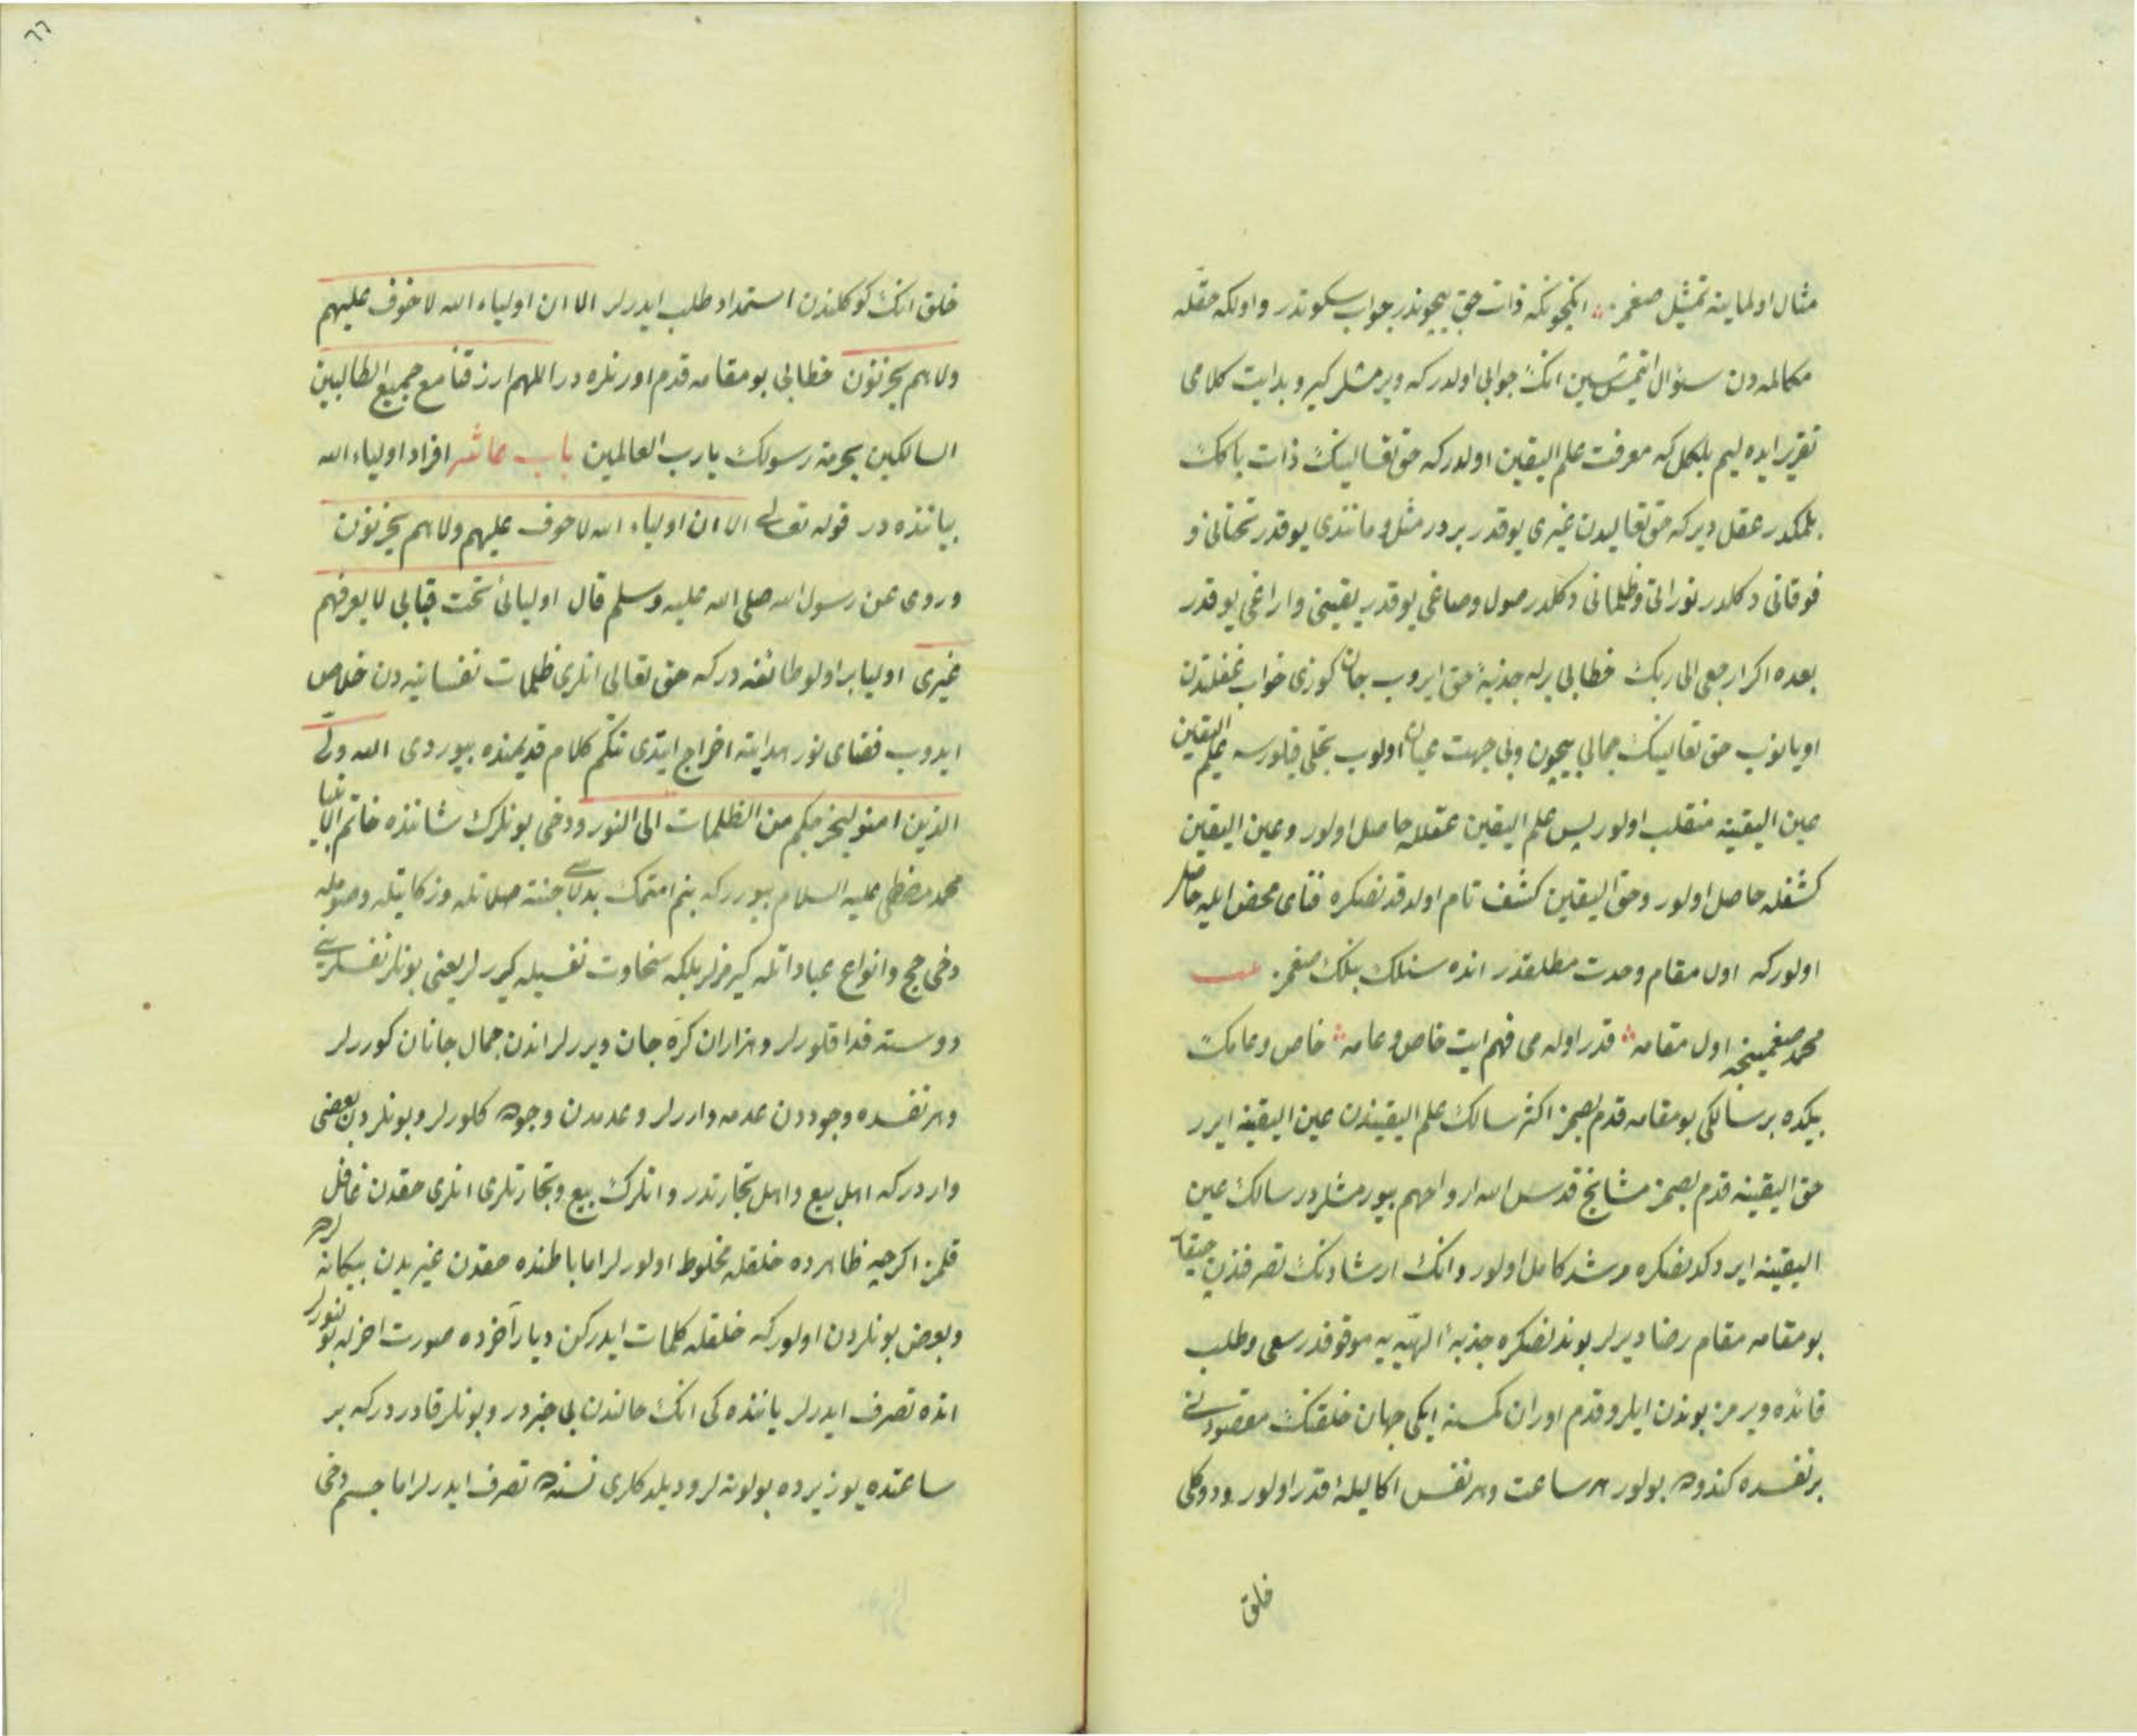 مثال اولماینه تمثیل صغمز انکچونکه ذات حق بیچوندر جواب سکوتدر واولکه حقله
مکالمه دن سؤال ایتمشسین انک جوابی اولدر که ویرمشلر کیرو بدایت کلامی
تقریر ایده لیم بلکل که معرفت علم الیقین اولدر که حق تعالینک ذات پاکک
بلمکدر عقل دیر که حق تعالیدن غیری یوقدر بردر مثل و مانندی یوقدر تحتانی و
فوقانی دکلدر نورانی وظلمانی دکلدر صول وصاغی یوقدر یقینی واراغی یوقدر
بعده اکر ارجعی الی ربک خطابی برله جذبهٔ حق ایروب جان کوزی خواب غفلتدن
اویانوب حق تعالینک جمالی بیچون وبی جهت عیان اولوب تجلی قیلورسه علم الیقین
عین الیقینه منقلب اولور پس علم الیقین عقلله حاصل اولور وعین الیقین
کشفله حاصل اولور وحق الیقین کشف تام اولدقدنصکره فنای محض ایله حاصل
اولور که اول مقام وحدت مطلقدر انده سنلک بنلک صغمز
محمد صغمینجه اول مقامه قدر اوله می فهم ایت خاص وعامه خاص وعامک
بیکده بر سالکی بو مقامه قدم بصمز اکثر سالک علم الیقیندن عین الیقینه ایرر
حق الیقینه قدم بصمز مشایخ قدس الله ارواحهم بیورمشلردر سالک عین
الیقینه ایردکدنصکره مرشد کامل اولور وانک ارشادنک تصرفندن
بو مقامه مقام رضا دیرلر بوندنصکره جذبهٔ الهیه یه موقوفدر سعی وطلب
فائده ویرمز بوندن ایلرو قدم اوران کمسنه ایکی جهان خلقنک مقصودنی
بر نفسده کندوده بولور هر ساعت وهر نفس اکا لیلهٔ قدر اولور ودوکلی
خلق
٦٦
خلق انک کوکلندن استمداد طلب ایدرلر الا ان اولیاء الله لا خوف علیهم
ولا هم یحزنون خطابی بو مقامه قدم اورنلره در اللهم ارزقنا مع جمیع الطالبین
السالکین بحرمة رسولک یا رب العالمین باب عاشر افراد اولیاء الله
بیاننده در قوله تعالی الا ان اولیاء الله لا خوف علیهم ولا هم یحزنون
وروی عن رسول الله صلی الله علیه وسلم قال اولیائی تحت قبابی لا یعرفهم
غیری اولیا بر اولو طائفه در که حق تعالی انلری ظلمات نفسانیه دن خلاص
ایدوب فضای نور هدایته اخراج ایتدی نتکم کلام قدیمنده بیوردی الله ولی
الذین امنو لیخرجکم من الظلمات الی النور ودخی بونلرک شاننده خاتم الانبیا
محمد مصطفی علیه السلام بیوررکه بنم امتمک بدلاسی جنته صلاتله وزکاتیله وصومله
دخی حج وانواع عباداتله کیرمزلر بلکه سخاوت نفسیله کیررلر یعنی بونلر نفسلرینی
دوسته فدا قلورلر وهزاران کره جان ویررلر اندن جمال جانان کوررلر
وهر نفسده وجوددن عدمه واررلر وعدمدن وجوده کلورلر وبونلردن بعضی
واردر که اهل بیع واهل تجارتدر وانلرک بیع وتجارتلری انلری حقدن غافل
قلمز اکرچه ظاهرده خلقله مخلوط اولورلر اما باطنده حقدن غیریدن بیکانه لردر
وبعض بونلردن اولور که خلقله کلمات ایدرکن دیار آخرده صورت اخرله بولنورلر
انده تصرف ایدرلر یاننده کی انک حالندن بی خبردر وبونلر قادردر که بر
ساعتده یوز یرده بولونه لر ودیلدکلری نسنه ده تصرف ایدرلر اما جسم دخی